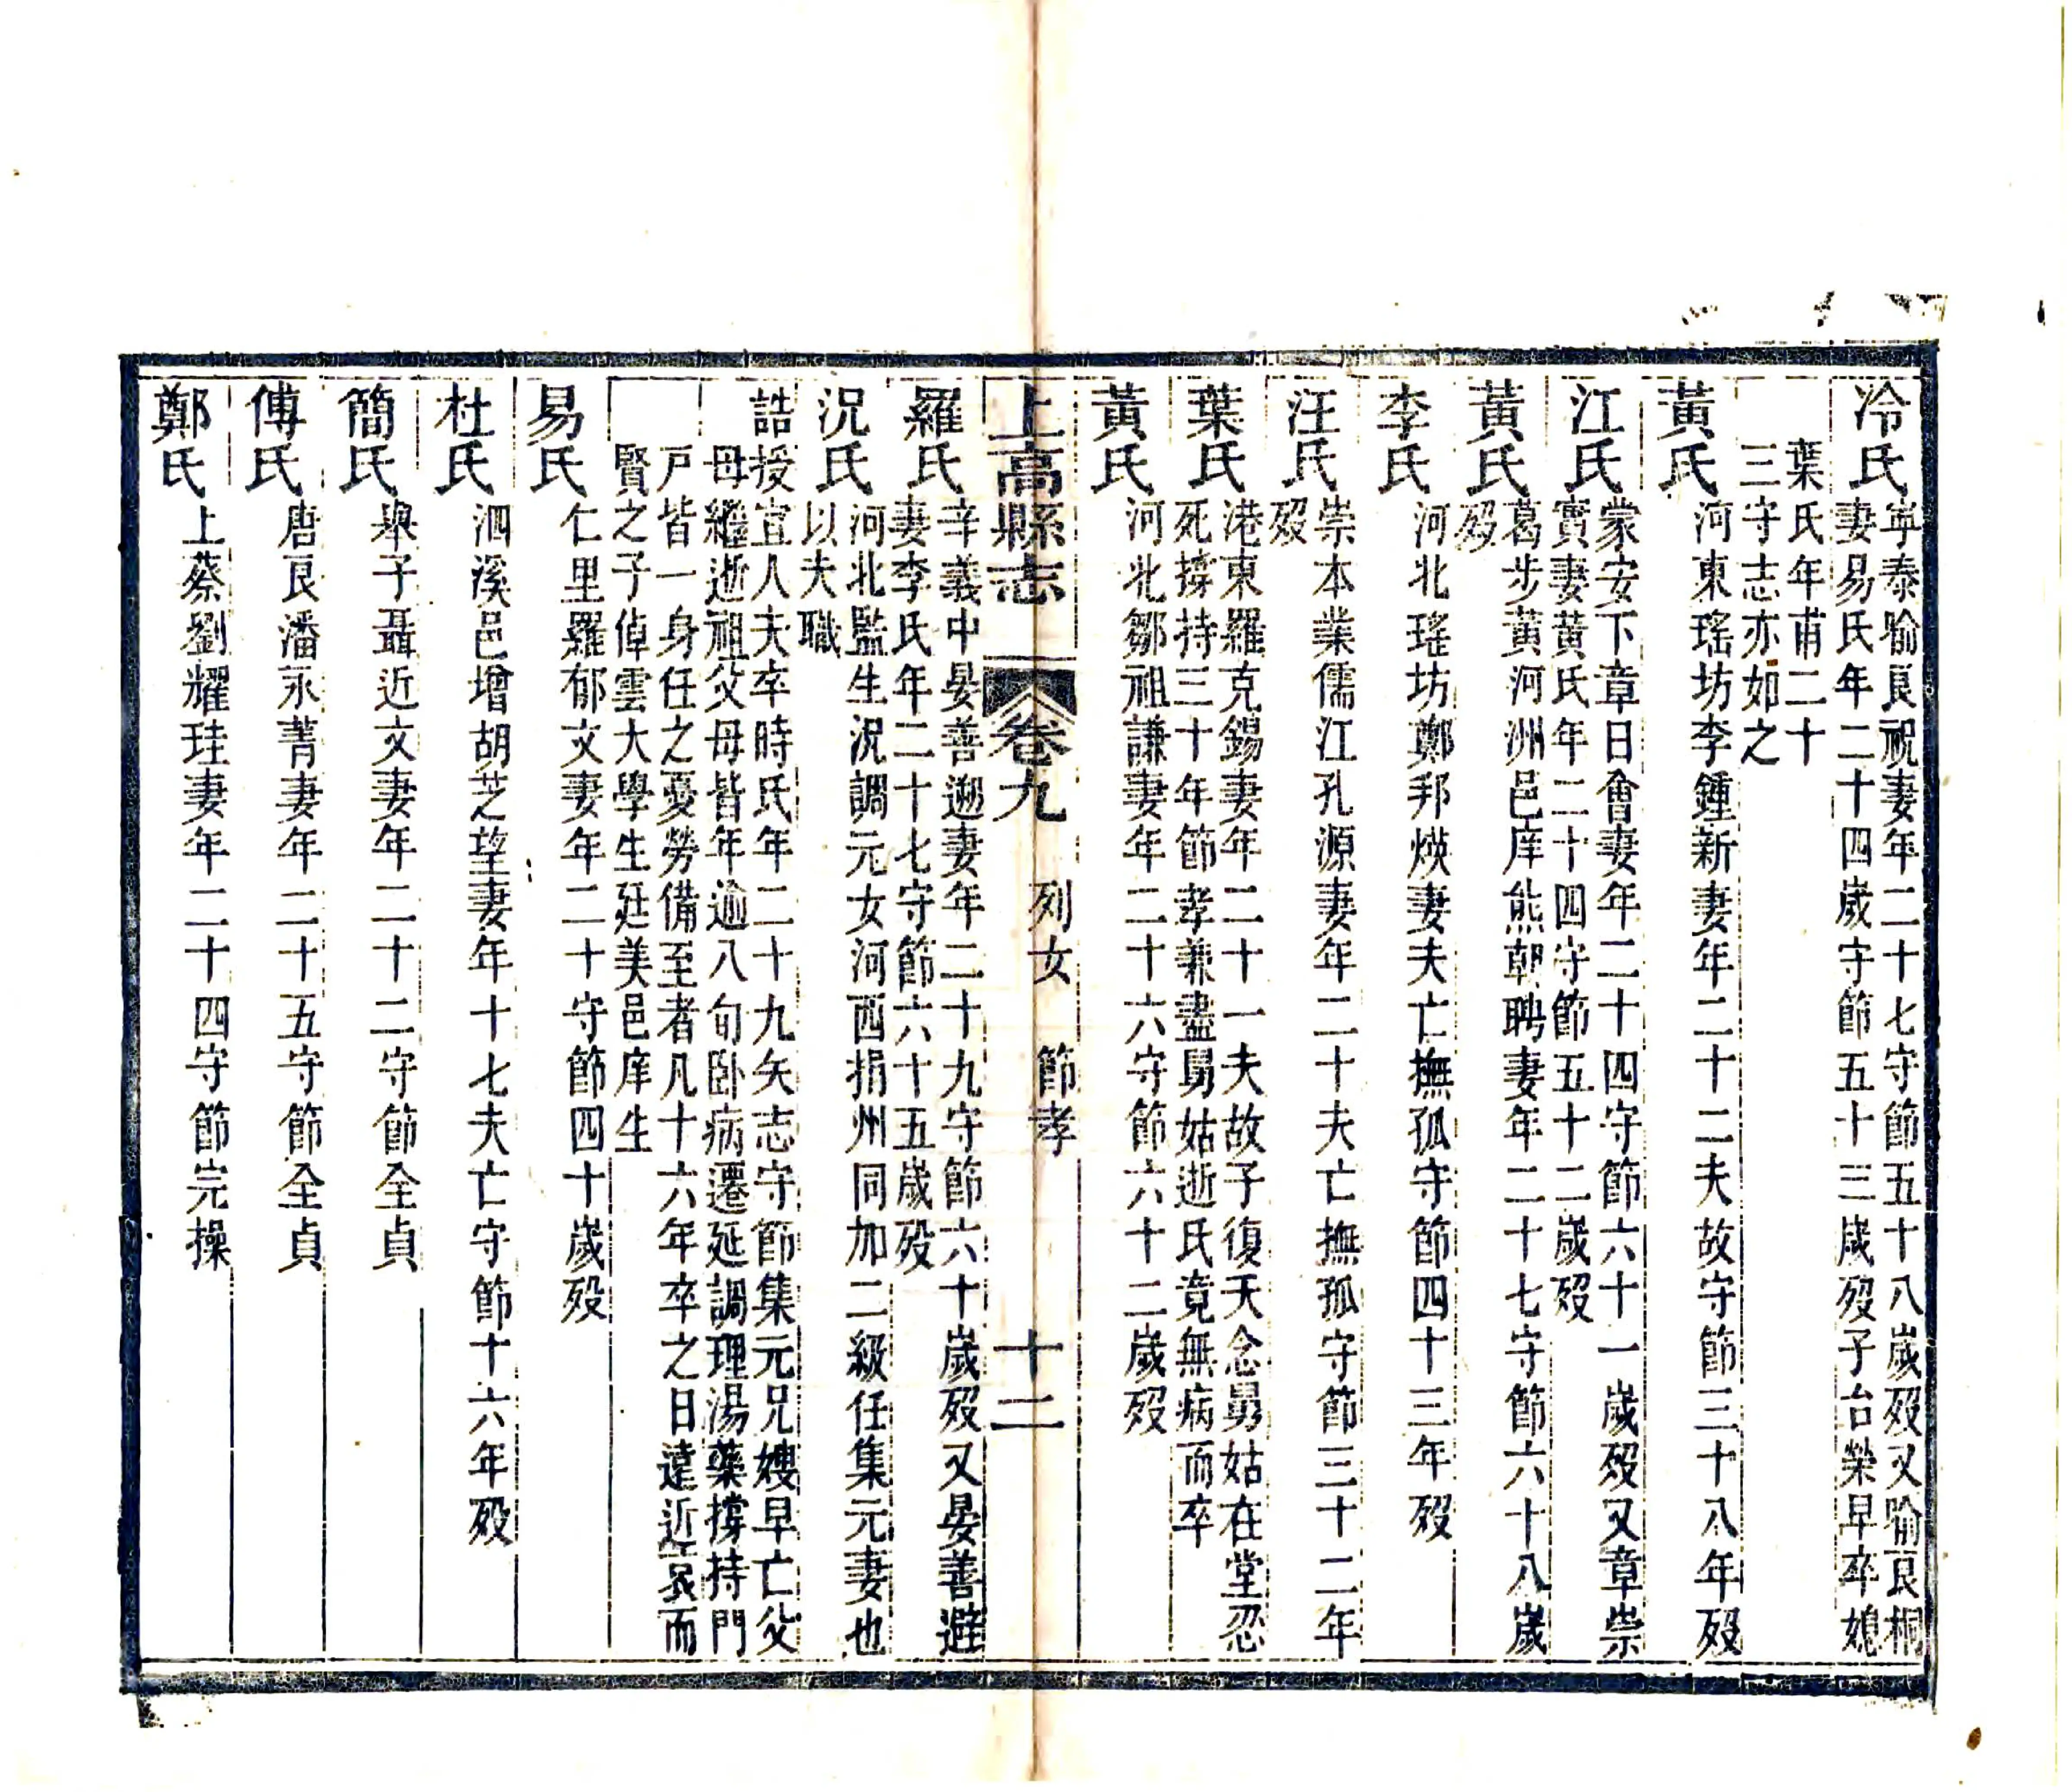 冷氏
寧泰喻良祝妻年二十七守節五十八歲歿又喻良桐
妻易氏年二十四歲守節五十三歲歿子台榮早卒媳
葉氏年甫二十
三守志亦如之
黃氏
河東瑤坊李鍾新妻年二十二夫故守節三十八年歿
江氏
蒙安下章日會妻年二十四守節六十一歲歿又章崇
實妻黃氏年二十四守節五十二歲歿
黃氏
葛步黃河洲邑庠熊朝聘妻年二十七守節六十八歲
歿
李氏
河北瑤坊鄭邦煐妻夫亡撫孤守節四十三年歿
汪氏
崇本業儒江孔源妻年二十夫亡撫孤守節三十二年
歿
葉氏
港東羅克錫妻年二十一夫故子復夭念舅姑在堂忍
死撐持三十年節孝兼盡舅姑逝氏竟無病而卒
黃氏
河北鄒祖謙妻年二十六守節六十二歲歿
上高縣志 卷九 列女 節孝 十二
羅氏
辛義中晏善遡妻年二十九守節六十歲歿又晏善避
妻李氏年二十七守節六十五歲歿
況氏
河北監生況調元女河西捐州同加二級任集元妻也
以夫職
誥授宜人夫卒時氏年二十九矢志守節集元兄嫂早亡父
母繼逝祖父母皆年逾八旬臥病遷延調理湯藥撐持門
戸皆一身任之憂勞備至者凡十六年卒之日遠近哀而
賢之子倬雲大學生廷美邑庠生
易氏
仁里羅郁文妻年二十守節四十歲歿
杜氏
泗溪邑增胡芝望妻年十七夫亡守節十六年歿
簡氏
塅子聶近文妻年二十二守節全貞
傅氏
唐良潘永菁妻年二十五守節全貞
鄭氏
上蔡劉耀珪妻年二十四守節完操